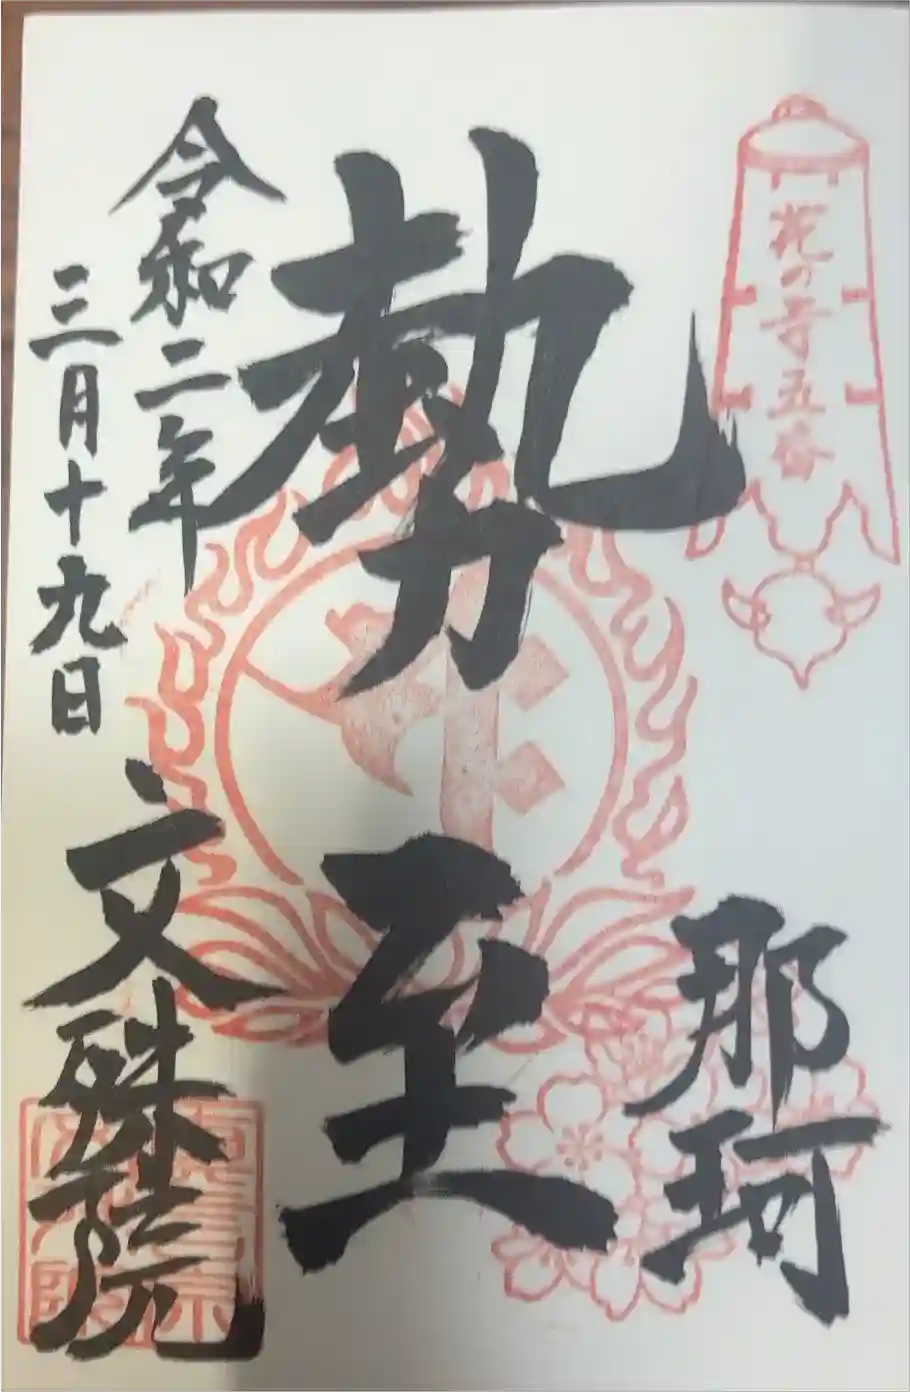 花の寺五番
那珂
勢至
令和二年
三月十九日
文殊院